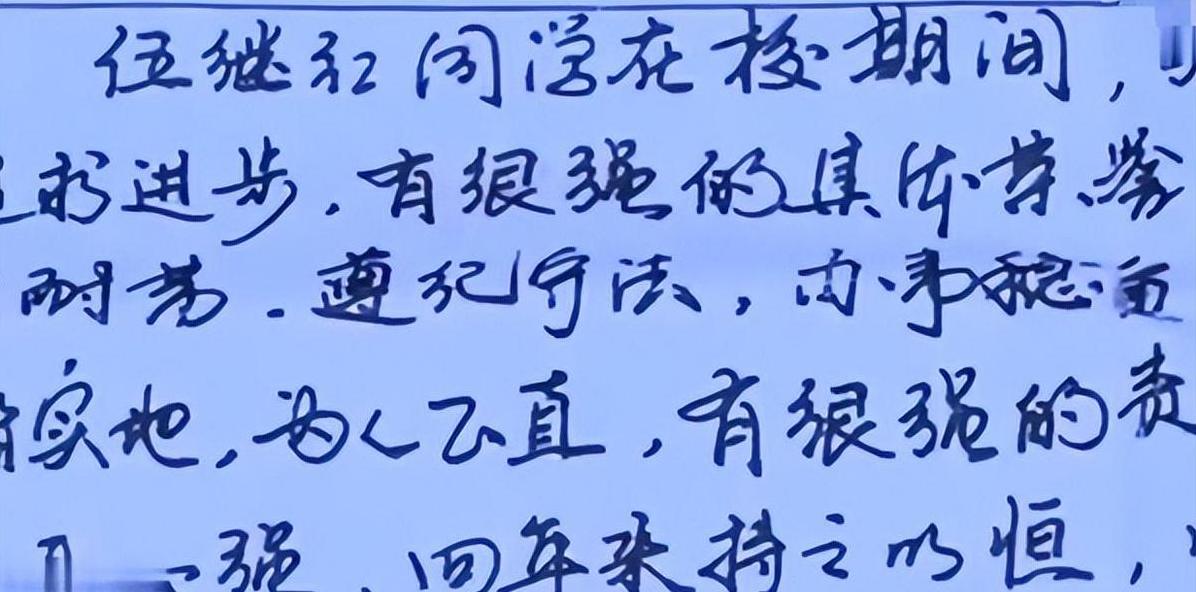 伍继红同学在校期间，
求进步．有很强的集体荣誉
耐劳．遵纪守法，办事稳重
实地，为人正直，有很强的责
强．四年来持之以恒，